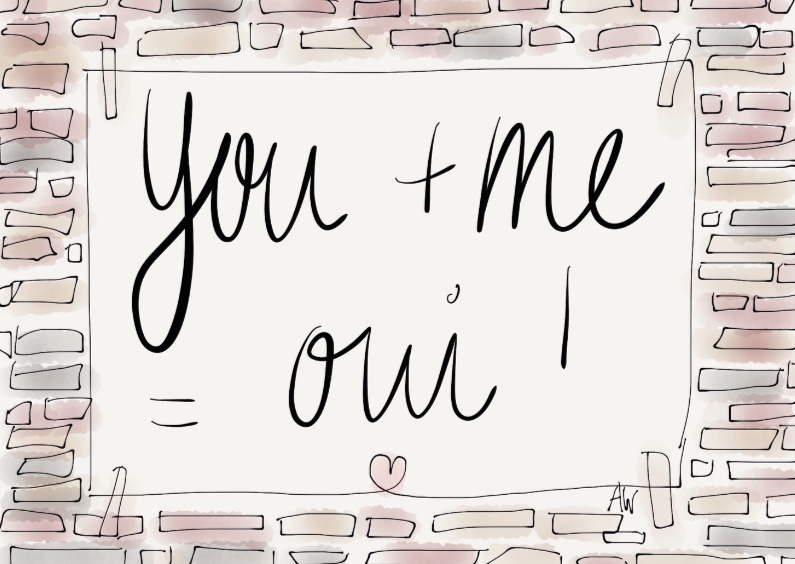 You + me
= oui !
AW